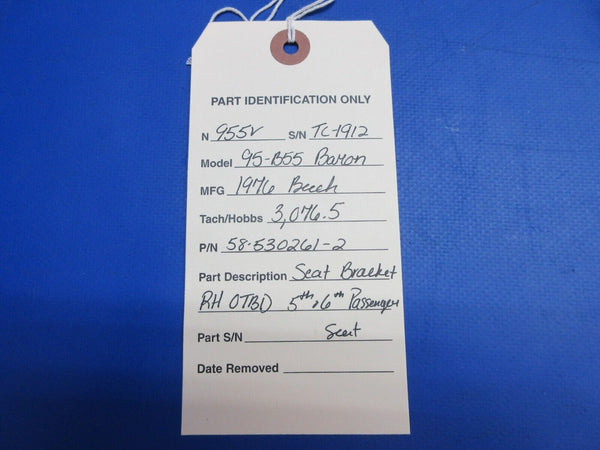 PART IDENTIFICATION ONLY
N 955V S/N TC-1912
Model 95-B55 Baron
MFG 1976 Beech
Tach/Hobbs 3,076.5
P/N 58-530261-2
Part Description Seat Bracket
RH OTBD 5th & 6th Passenger
Part S/N Seat
Date Removed